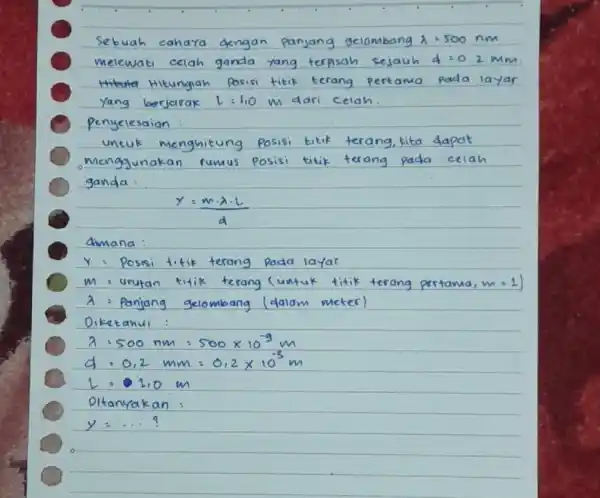 Sebuah cahaya dengan panjang gelombang λ = 500 nm
melewati celah ganda yang terpisah sejauh d = 0 2 mm
Hitungan Hitunglah posisi titik terang pertama pada layar
yang berjarak L = 1,0 m dari celah.
Penyelesaian :
untuk menghitung posisi titik terang, kita dapat
menggunakan rumus posisi titik terang pada celah
ganda :
y = m . λ . L
d
dimana :
Y : Posisi titik terang pada layar
m : urutan titik terang (untuk titik terang pertama, m = 1)
λ : Panjang gelombang (dalam meter)
Diketahui :
λ = 500 nm = 500 × 10⁻⁹ m
d = 0,2 mm = 0,2 × 10⁻³ m
L = 1,0 m
Ditanyakan :
y = ... ?